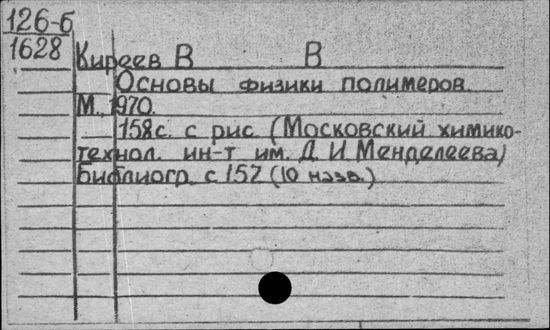 126-б
1628
Киреев В В
Основы физики полимеров.
М., 1970.
158с. с рис. (Московский химико-
технол. ин-т им. Д. И. Менделеева)
Библиогр. с 157 (10 назв.)